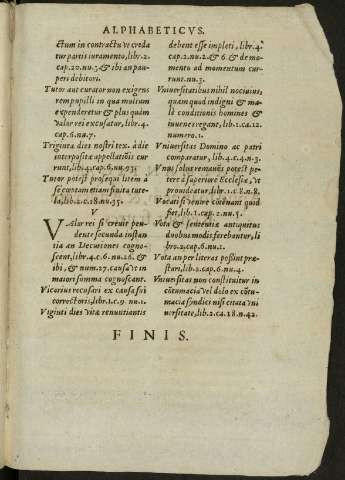 ALPHABETICVS.
ctum in contractu vt creda
tur parti iuramento, libr.2.
cap.20.nu.5 & ibi an pau-
peri debitori.
Tutor aut curator non exigens
rem pupilli in qua multum
expenderetur & plus quàm
valor rei excusatur, lib.4.
cap.6.nu.7.
Triginta dies nostri tex. à die
interpositæ appellatiõis cur
runt, lib.4.cap.6.nu.93.
Tutor potest prosequi litem à
se cœptam etiam finita tute-
la, lib.2.c.18.nu.35.
V
VAlor rei si creuit pen-
dente secunda instan
tia an Decuriones cogno-
scent, libr.4.c.6.nu.26. &
ibi, & num.27. causa vt in
maiori summa cognoscant.
Vicarius recusari ex causa sui
correctoris, libr.1.c.9. nu.1.
Viginti dies vitæ renuntiantis
debent esse impleti, libr.4.
cap.2.nu.2. & 6 & de mo-
mento ad momentum cur-
runt.nu.3.
Vniuersitatibus nihil nociuius,
quàm quod indigni & ma-
læ conditionis homines &
iuuenes regant, lib.1.ca.12.
numero.1.
Vniuersitas Domino ac patri
comparatur, lib.4.c.4.n.3.
Vnus solus remanẽs potest pe-
tere à superiore Ecclesiæ, vt
prouideatur, libr.1.c.8.n.8.
Vocati si venire cõtẽnant quid
fiet, lib.1.cap.2.nu.5.
Vota & sententiæ antiquitus
duobus modis ferebantur, li
bro.2.cap.6.nu.1.
Vota an per literas possint præ-
stari, lib.2.cap.6.nu.4.
Vniuersitas non constituitur in
cõtumacia vel dolo ex cõtu-
macia syndici nisi citata vni
uersitate, lib.2.ca.18.n.42.
FINIS.